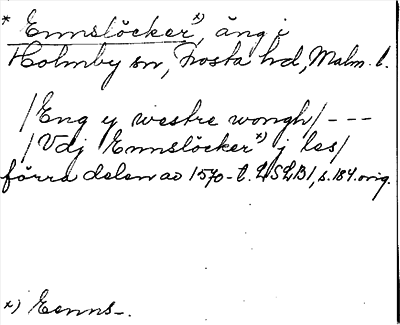 * Ennslöcker x), äng i
Holmby sn, Frosta hd, Malm. l.
/Eng y westre wongh/ ---
/Vdj Ennslöcker x) j les/
förra delen av 1570-t. LSLB1, s. 184. orig.
x) Eenns-.